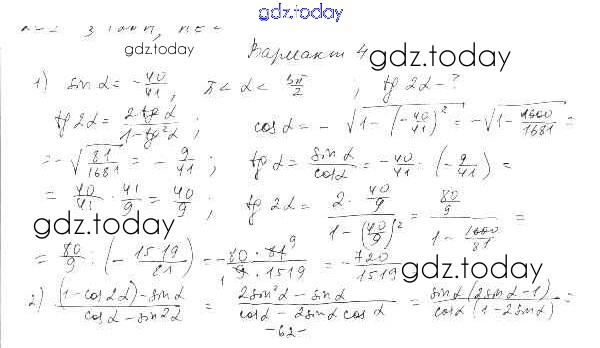 gdz.today
gdz.today
gdz.today
Вариант 4
1) sin α = -40/41, π < α < 3π/2; tg 2α - ?
tg 2α = 2 tg α/1 - tg²α; cos α = - √(1 - (-40/41)²) = - √(1 - 1600/1681) =
= - √(81/1681) = - 9/41; tg α = sin α/cos α = - 40/41 : (- 9/41) =
= 40/41 · 41/9 = 40/9; tg 2α = 2 · 40/9 / 1 - (40/9)² = 80/9 / 1 - 1600/81 =
gdz.today
= 80/9 : (- 1519/81) = - 80 · 81 9/1 9 · 1519 = - 720/1519
gdz.today
2) (1 - cos 2α) - sin α/cos α - sin 2α = 2 sin²α - sin α/cos α - 2 sin α cos α = sin α (2 sin α - 1)/cos α (1 - 2 sin α) =
-62-